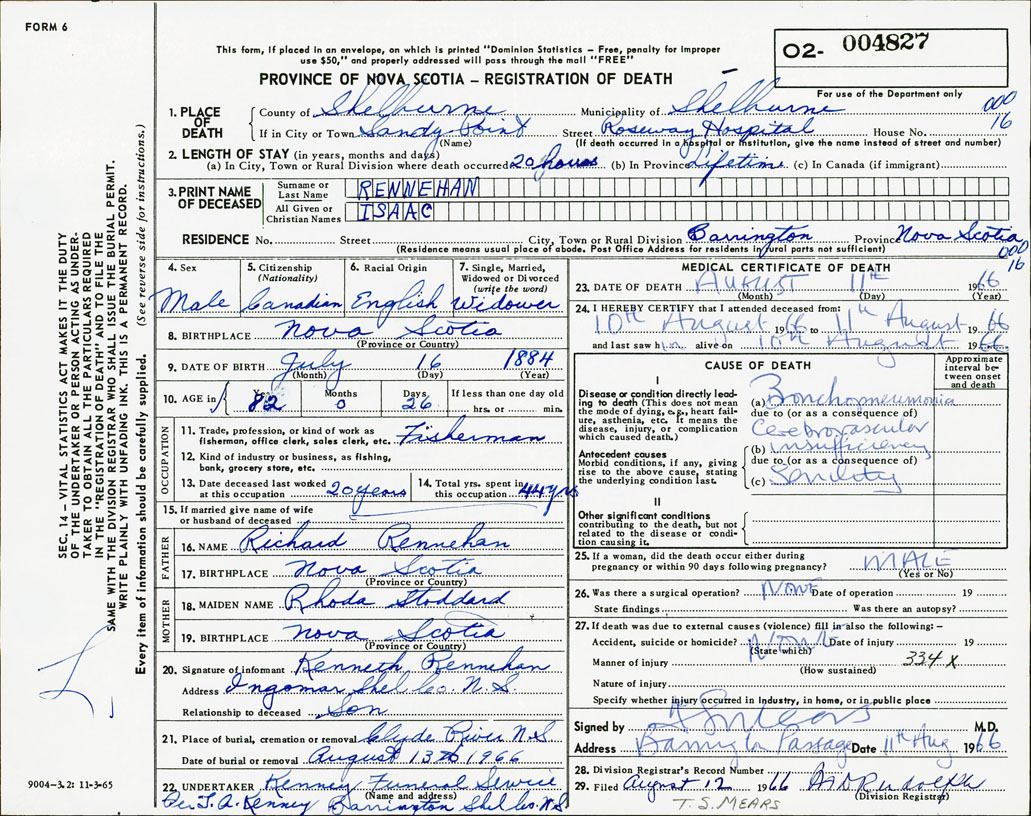 FORM 6
This form, if placed in an envelope, on which is printed "Dominion Statistics – Free, penalty for improper
use $50," and properly addressed will pass through the mail "FREE"
O2- 004827
For use of the Department only
PROVINCE OF NOVA SCOTIA – REGISTRATION OF DEATH
000
16
1. PLACE OF DEATH
County of Shelburne Municipality of Shelburne
If in City or Town Sandy Point Street Roseway Hospital House No.
(Name) (If death occurred in a hospital or institution, give the name instead of street and number)
2. LENGTH OF STAY (in years, months and days)
(a) In City, Town or Rural Division where death occurred 20 hours (b) In Province Lifetime (c) In Canada (if immigrant)
3. PRINT NAME OF DECEASED
Surname or Last Name RENNEHAN
All Given or Christian Names ISAAC
RESIDENCE No. Street City, Town or Rural Division Barrington Province Nova Scotia
(Residence means usual place of abode. Post Office Address for residents in rural parts not sufficient)
000
16
4. Sex
Male
5. Citizenship (Nationality)
Canadian
6. Racial Origin
English
7. Single, Married, Widowed or Divorced (write the word)
Widower
8. BIRTHPLACE Nova Scotia
(Province or Country)
9. DATE OF BIRTH July 16 1884
(Month) (Day) (Year)
10. AGE in Years 82 Months 0 Days 26 If less than one day old
hrs. or min.
OCCUPATION
11. Trade, profession, or kind of work as
fisherman, office clerk, sales clerk, etc. Fisherman
12. Kind of industry or business, as fishing,
bank, grocery store, etc.
13. Date deceased last worked
at this occupation 20 years
14. Total yrs. spent in
this occupation 44 yrs
15. If married give name of wife
or husband of deceased
FATHER
16. NAME Richard Rennehan
17. BIRTHPLACE Nova Scotia
(Province or Country)
MOTHER
18. MAIDEN NAME Rhoda Stoddard
19. BIRTHPLACE Nova Scotia
(Province or Country)
20. Signature of informant Kenneth Rennehan
Address Ingomar Shel Co. N.S
Relationship to deceased Son
21. Place of burial, cremation or removal Clyde River N.S
Date of burial or removal August 13th 1966
22. UNDERTAKER Kenney Funeral Service
(Name and address)
Per T. A. Kenney Barrington Shel Co. N.S
MEDICAL CERTIFICATE OF DEATH
23. DATE OF DEATH AUGUST 11th 1966
(Month) (Day) (Year)
24. I HEREBY CERTIFY that I attended deceased from:
10th August 1966 to 11th August 1966
and last saw him alive on 10th August 1966
CAUSE OF DEATH
Approximate interval between onset and death
I
Disease or condition directly leading to death (This does not mean the mode of dying, e.g., heart failure, asthenia, etc. It means the disease, injury, or complication which caused death.)
(a) Bronchopneumonia
due to (or as a consequence of)
Cerebrovascular
(b) insufficiency
due to (or as a consequence of)
(c) Senility
Antecedent causes
Morbid conditions, if any, giving rise to the above cause, stating the underlying condition last.
II
Other significant conditions contributing to the death, but not related to the disease or condition causing it.
25. If a woman, did the death occur either during
pregnancy or within 90 days following pregnancy? MALE
(Yes or No)
26. Was there a surgical operation? NONE Date of operation 19
State findings Was there an autopsy?
27. If death was due to external causes (violence) fill in also the following: –
Accident, suicide or homicide? NONE Date of injury 19
(State which)
Manner of injury 334 X
(How sustained)
Nature of injury
Specify whether injury occurred in industry, in home, or in public place
Signed by T S Mears M.D.
Address Barrington Passage Date 11th Aug 1966
28. Division Registrar's Record Number
29. Filed August 12 1966 Rudolph
(Division Registrar)
T. S. MEARS
SEC. 14 – VITAL STATISTICS ACT MAKES IT THE DUTY
OF THE UNDERTAKER OR PERSON ACTING AS UNDER-
TAKER TO OBTAIN ALL THE PARTICULARS REQUIRED
IN THE "REGISTRATION OF DEATH" AND TO FILE THE
SAME WITH THE DIVISION REGISTRAR WHO SHALL ISSUE THE BURIAL PERMIT.
WRITE PLAINLY WITH UNFADING INK. THIS IS A PERMANENT RECORD.
Every item of information should be carefully supplied. (See reverse side for instructions.)
9004-3.2: 11-3-65